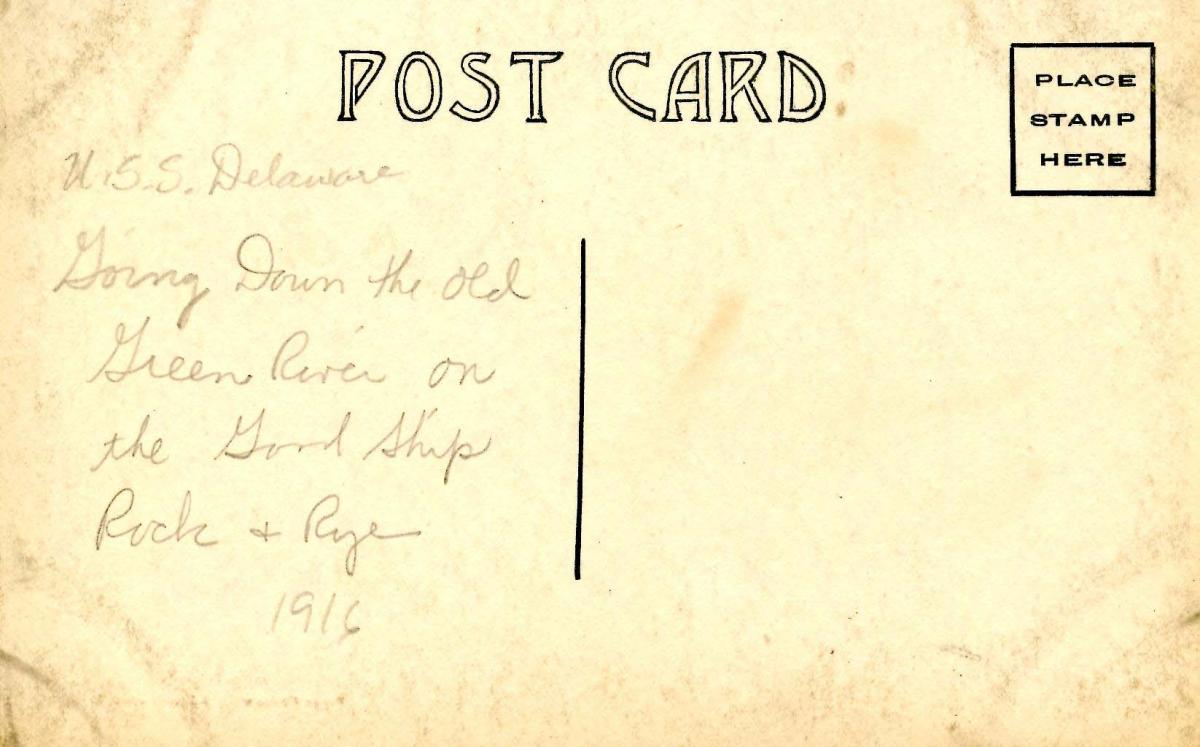 POST CARD
PLACE
STAMP
HERE
U.S.S. Delaware
Going Down the Old
Green River on
the Good Ship
Rock + Rye
1916